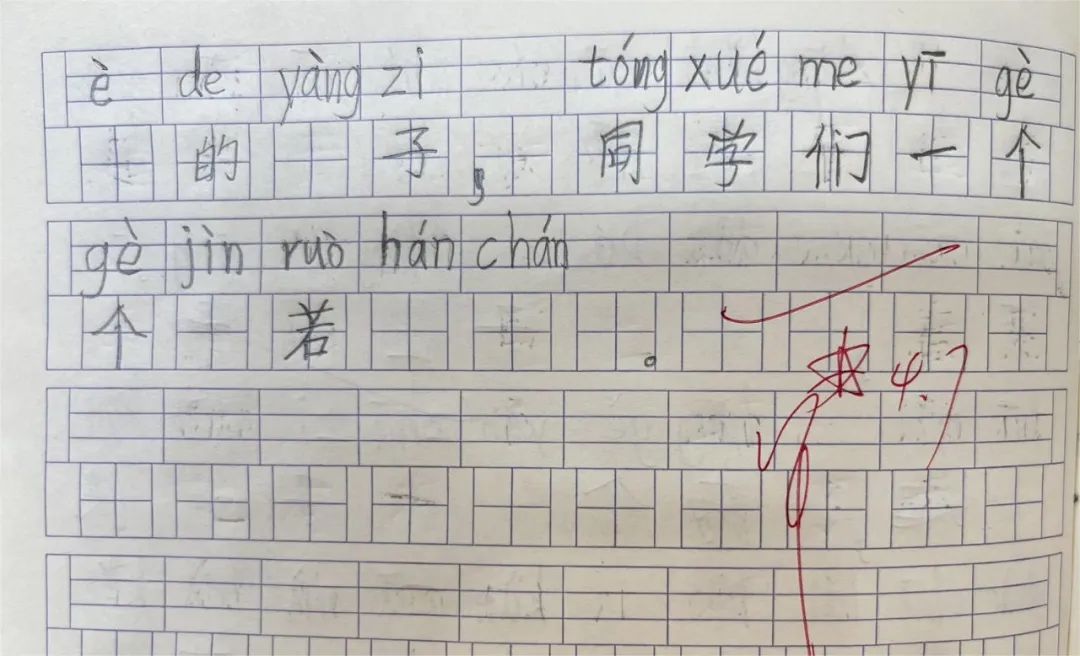 è de yàng zi tóng xué me yī gè
的 子, 同 学 们 一 个
gè jìn ruò hán chán
个 若 。
4.7